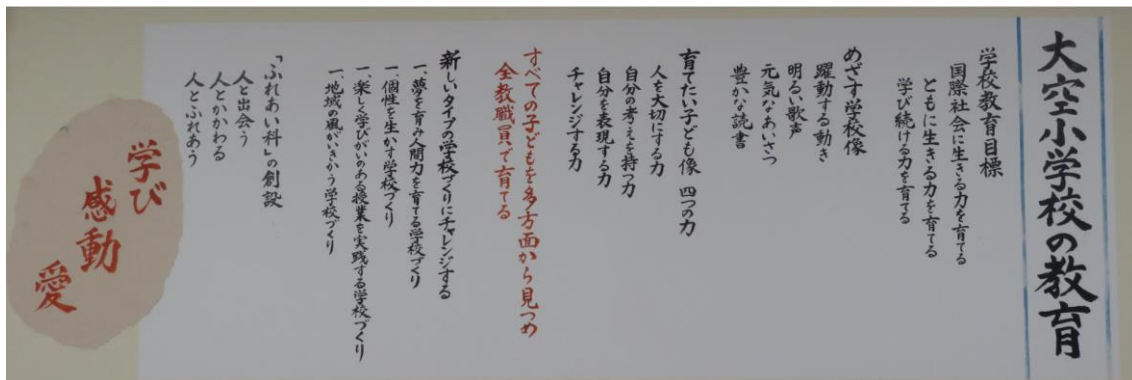 大空小学校の教育
学校教育目標
国際社会に生きる力を育てる
ともに生きる力を育てる
学び続ける力を育てる
めざす学校像
躍動する動き
明るい歌声
元気なあいさつ
豊かな読書
育てたい子ども像 四つの力
人を大切にする力
自分の考えを持つ力
自分を表現する力
チャレンジする力
すべての子どもを多方面から見つめ
全教職員で育てる
新しいタイプの学校づくりにチャレンジする
一、夢を育み人間力を育てる学校づくり
一、個性を生かす学校づくり
一、楽しく学びがいのある授業を実践する学校づくり
一、地域の風がいきかう学校づくり
「ふれあい科」の創設
人と出会う
人とかかわる
人とふれあう
学び
感動
愛